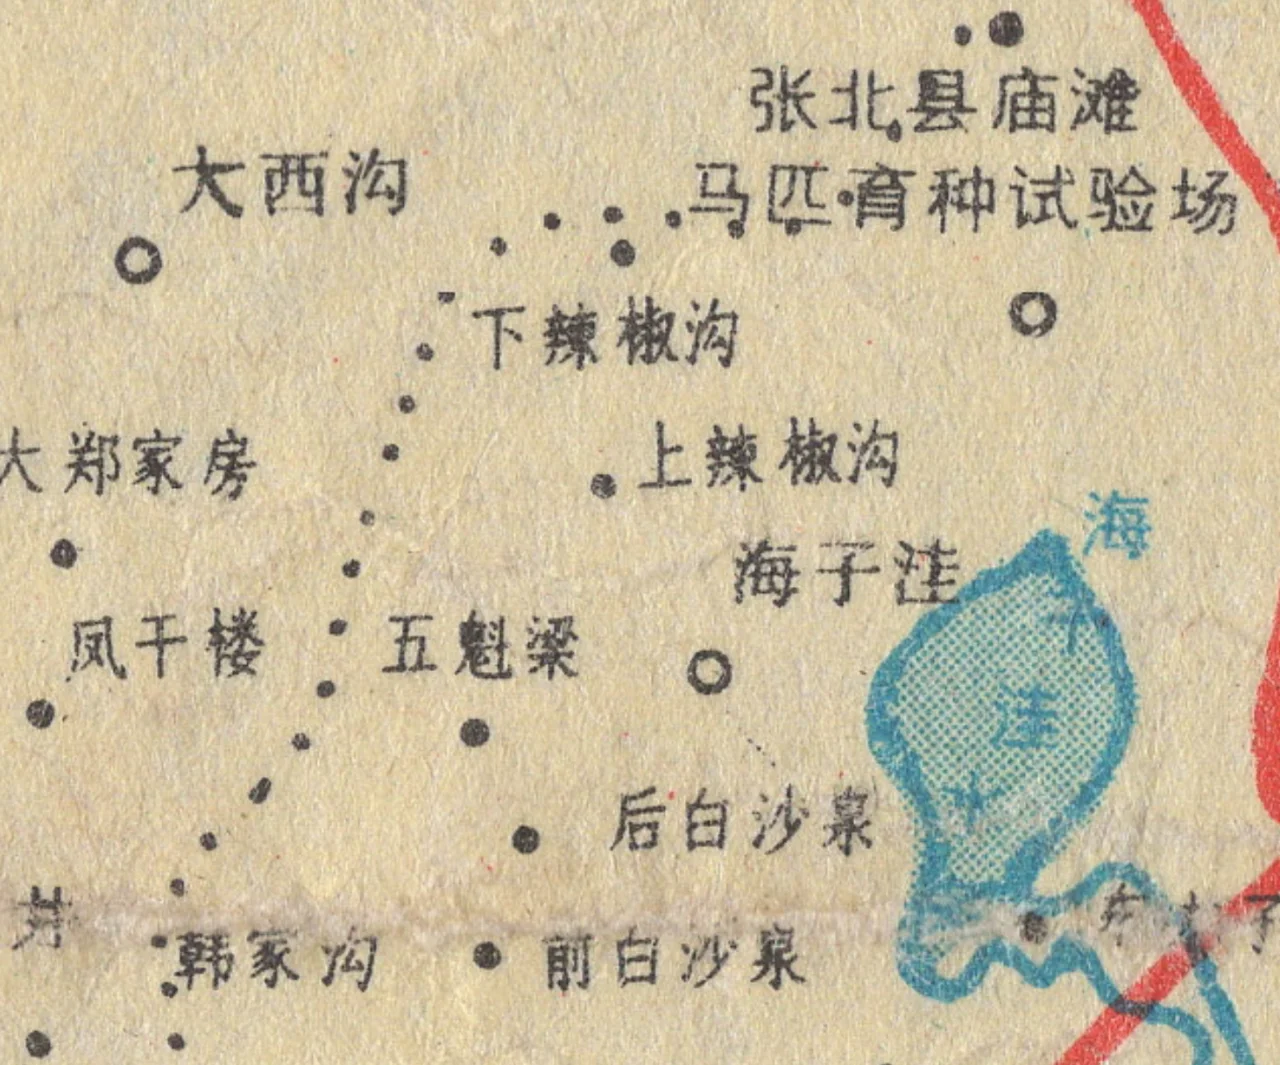 张北县庙滩
马匹育种试验场
大西沟
下辣椒沟
大郑家房
上辣椒沟
海子洼
海
水
洼
水
凤干楼
五魁梁
后白沙泉
井
韩家沟
前白沙泉
子